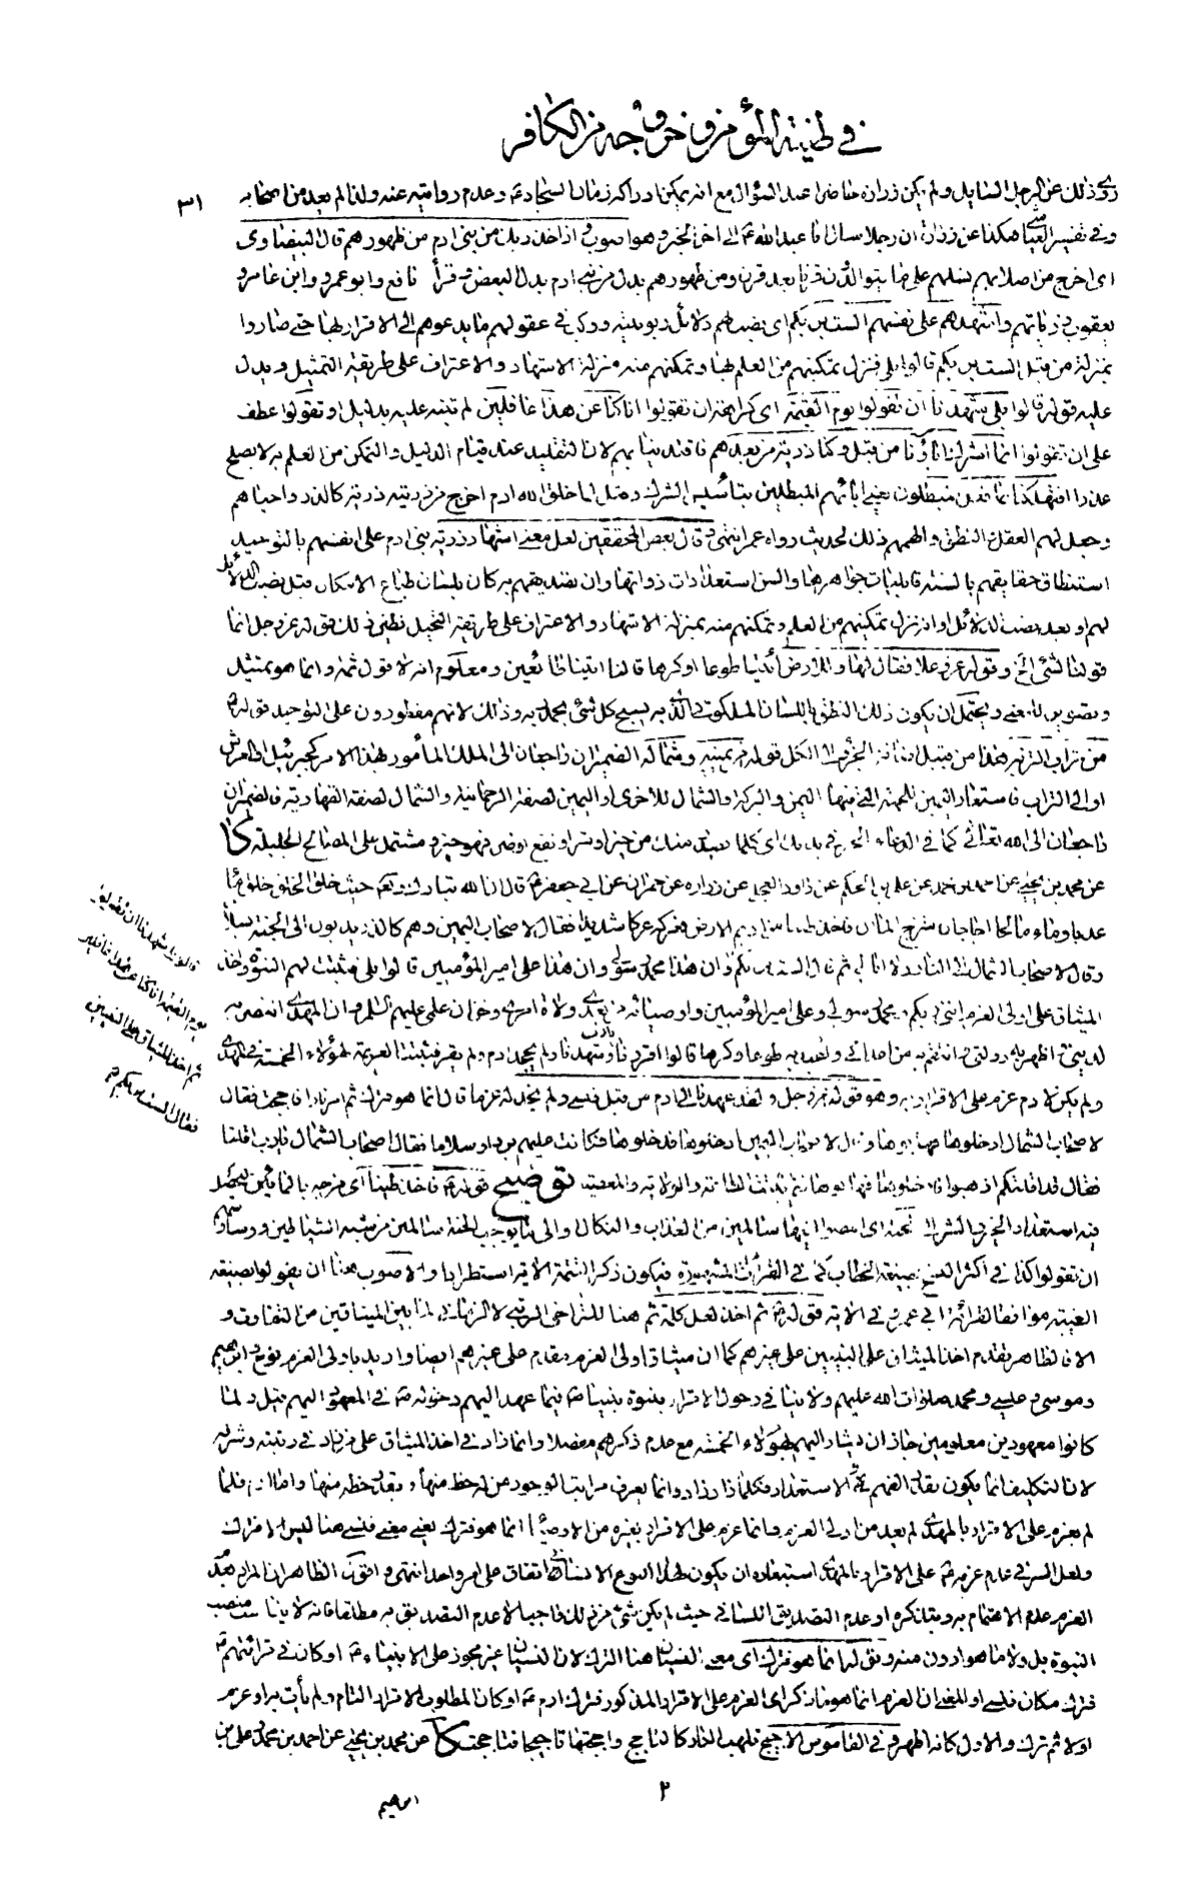 في طينة المؤمن وخروجه من الكافر
٣١
ذلك عن الرجل السايل ولم يكن زرارة حاضرا عند السؤال مع انه يمكن ادراكه زمان السجاد ع وعدم روايته عنه ولذا لم يعد من اصحابه
وفي تفسير العياشي هكذا عن زرارة ان رجلا سال ابا عبد الله ع الى اخر الخبر وهو اصوب واذ اخذ ربك من بني ادم من ظهورهم قال البيضاوي
اي اخرج من اصلابهم نسلهم على ما يتوالدون قرنا بعد قرن ومن ظهورهم بدل من بني ادم بدل البعض وقرأ نافع وابو عمرو وابن عامر و
يعقوب ذرياتهم واشهدهم على انفسهم الست بربكم اي نصب لهم دلائل ربوبيته وركب في عقولهم ما يدعوهم الى الاقرار بها حتى صاروا
بمنزلة من قيل الست بربكم قالوا بلى فنزل تمكينهم من العلم بها وتمكنهم منه منزلة الاشهاد والاعتراف على طريقة التمثيل ويدل
عليه قوله قالوا بلى شهدنا ان تقولوا يوم القيمة اي كراهة ان تقولوا انا كنا عن هذا غافلين لم ننبه عليه بدليل او تقولوا عطف
على ان تقولوا انما اشرك اباؤنا من قبل وكنا ذرية من بعدهم فاقتدينا بهم لان التقليد عند قيام الدليل والتمكن من العلم به لا يصلح
عذرا افتهلكنا بما فعل المبطلون يعني ابائهم المبطلين بتأسيس الشرك وقيل لما خلق الله ادم اخرج من ظهره ذرية كالذر واحياهم
وجعل لهم العقل والنطق والهمهم ذلك لحديث رواه عمر انتهى وقال بعض المحققين لعل معنى اشهاد ذرية بني ادم على انفسهم بالتوحيد
استنطاق حقايقهم بالسنة قابليات جواهرها والسن استعدادات ذواتها وان تصديقهم به كان بلسان طباع الامكان قبل نصب الدلائل
لهم او بعد نصب الدلائل وانه نزل تمكينهم من العلم وتمكنهم منه بمنزلة الاشهاد والاعتراف على طريقة التخييل نظير ذلك قوله عز وجل انما
قولنا لشئ الخ وقوله عز وعلا فقال لها وللارض ائتيا طوعا او كرها قالتا اتينا طائعين ومعلوم انه لا قول ثمة وانما هو تمثيل
وتصوير للمعنى ويحتمل ان يكون ذلك النطق باللسان الملكوتي الذي به يسبح كل شئ بحمد ربه وذلك لانهم مفطورون على التوحيد قوله
من تراب التربة هذا من قبيل اضافة الجزء الى الكل قوله من يمينه وشماله الضميران راجعان الى الملك المأمور بهذا الامر كجبرئيل او العرش
او الى التراب فاستعار اليمين للجهة التي فيها اليمن والبركة والشمال للاخرى او اليمين لصفة الرحمانية والشمال لصفة القهارية فالضميران
راجعان الى الله تعالى كما في الدعاء والخير في يديك اي كلما يصدر منك من خير او شر او نفع او ضر فهو خير ومشتمل على المصالح الجليلة كا
عن محمد بن يحيى عن احمد بن محمد عن علي بن الحكم عن داود العجلي عن زرارة عن حمران عن ابي جعفر ع قال ان الله تبارك وتعالى حيث خلق الخلق خلق ماء
عذبا وماء مالحا اجاجا فامتزج الماان فاخذ طينا من اديم الارض فعركه عركا شديدا فقال لاصحاب اليمين وهم كالذر يدبون الى الجنة بسلام
وقال لاصحاب الشمال الى النار ولا ابالي ثم قال الست بربكم وان هذا محمد رسولي وان هذا علي امير المؤمنين قالوا بلى فثبتت لهم النبوة واخذ
الميثاق على اولي العزم انني ربكم ومحمد رسولي وعلي امير المؤمنين واوصياؤه من بعده ولاة امري وخزان علمي عليهم السلم وان المهدي انتصر به
لديني واظهر به دولتي وانتقم به من اعدائي واعبد به طوعا وكرها قالوا اقررنا يا رب وشهدنا ولم يجحد ادم ولم يقر فثبتت العزيمة لهؤلاء الخمسة في المهدي
ولم يكن لادم عزم على الاقرار به وهو قوله عز وجل ولقد عهدنا الى ادم من قبل فنسي ولم نجد له عزما قال انما هو فترك ثم امر نارا فاججت فقال
لاصحاب الشمال ادخلوها فهابوها وقال لاصحاب اليمين ادخلوها فدخلوها فكانت عليهم بردا وسلاما فقال اصحاب الشمال يا رب اقلنا
فقال قد اقلتكم اذهبوا فادخلوها فهابوها فثم ثبتت الطاعة والولاية والمعصية توضيح قوله ع فاخذ طينا اي مزجه بالمائين ليحصل
فيه استعداد الخير والشر
ان تقولوا كذا في اكثر النسخ بصيغة الخطاب كما في القراءات المشهورة فيكون ذكر التتمة الاية استطرادا والاصوب هنا ان يقولوا بصيغة
الغيبة موافقا لقراءة ابي عمرو في الاية قوله ثم اخذ لعل كلمة ثم هنا للتراخي الرتبي لا الزماني لما بين الميثاقين من التفاوت و
الا فالظاهر تقدم اخذ الميثاق على النبيين على غيرهم كما ان ميثاق اولي العزم مقدم على غيرهم ايضا واريد باولي العزم نوح وابراهيم
وموسى وعيسى ومحمد صلوات الله عليهم ولا ينافي دخول الاقرار بنبوة نبينا ص فيما عهد اليهم دخوله ص في المعهود اليهم قيل ولما
كانوا معهودين معلومين جاز ان يشار اليهم بهؤلاء الخمسة مع عدم ذكرهم مفصلا وانما زاد في اخذ الميثاق على من زاد في رتبته وشرفه
لان التكليف انما يكون بقدر الفهم والاستعداد فكلما زاد زاد وانما يعرف مراتب الوجود من له حظ منها وبقدر حظه منها واما ادم فلما
لم يعزم على الاقرار بالمهدي لم يعد من اولي العزم وانما عزم على الاقرار بغيره من الاوصياء انما هو فترك يعني معنى فنسي هنا ليس الا فترك
ولعل السر في عدم عزمه ع على الاقرار بالمهدي استبعاده ان يكون لهذا النوع الانساني اتفاق على امر واحد انتهى واقول الظاهر ان المراد بعدم
العزم عدم الاهتمام به وبتذكره او عدم التصديق اللساني حيث لم يكن شئ من ذلك واجبا لا عدم التصديق به مطلقا فانه لا يناسب منصب
النبوة بل ولا ما هو ادون منه وقوله انما هو فترك اي معنى النسيان هنا الترك لان النسيان غير مجوز على الانبياء ع او كان في قرائتهم ع
فترك مكان فنسي او المعنى ان العزم انما هو ما ذكر اي العزم على الاقرار المذكور فترك ادم ع او كان المطلوب الاقرار التام ولم يأت به او عزم
اولا ثم ترك والاول كانه اظهر وفي القاموس الاجيج تلهب النار كالتاجج واججتها تاجيجا فتاججت كا عن محمد بن يحيى عن احمد بن محمد عن علي بن
قالوا بلى شهدنا ان تقولوا
يوم القيمة انا كنا عن هذا غافلين
ثم اخذ الميثاق على النبيين
فقال الست بربكم